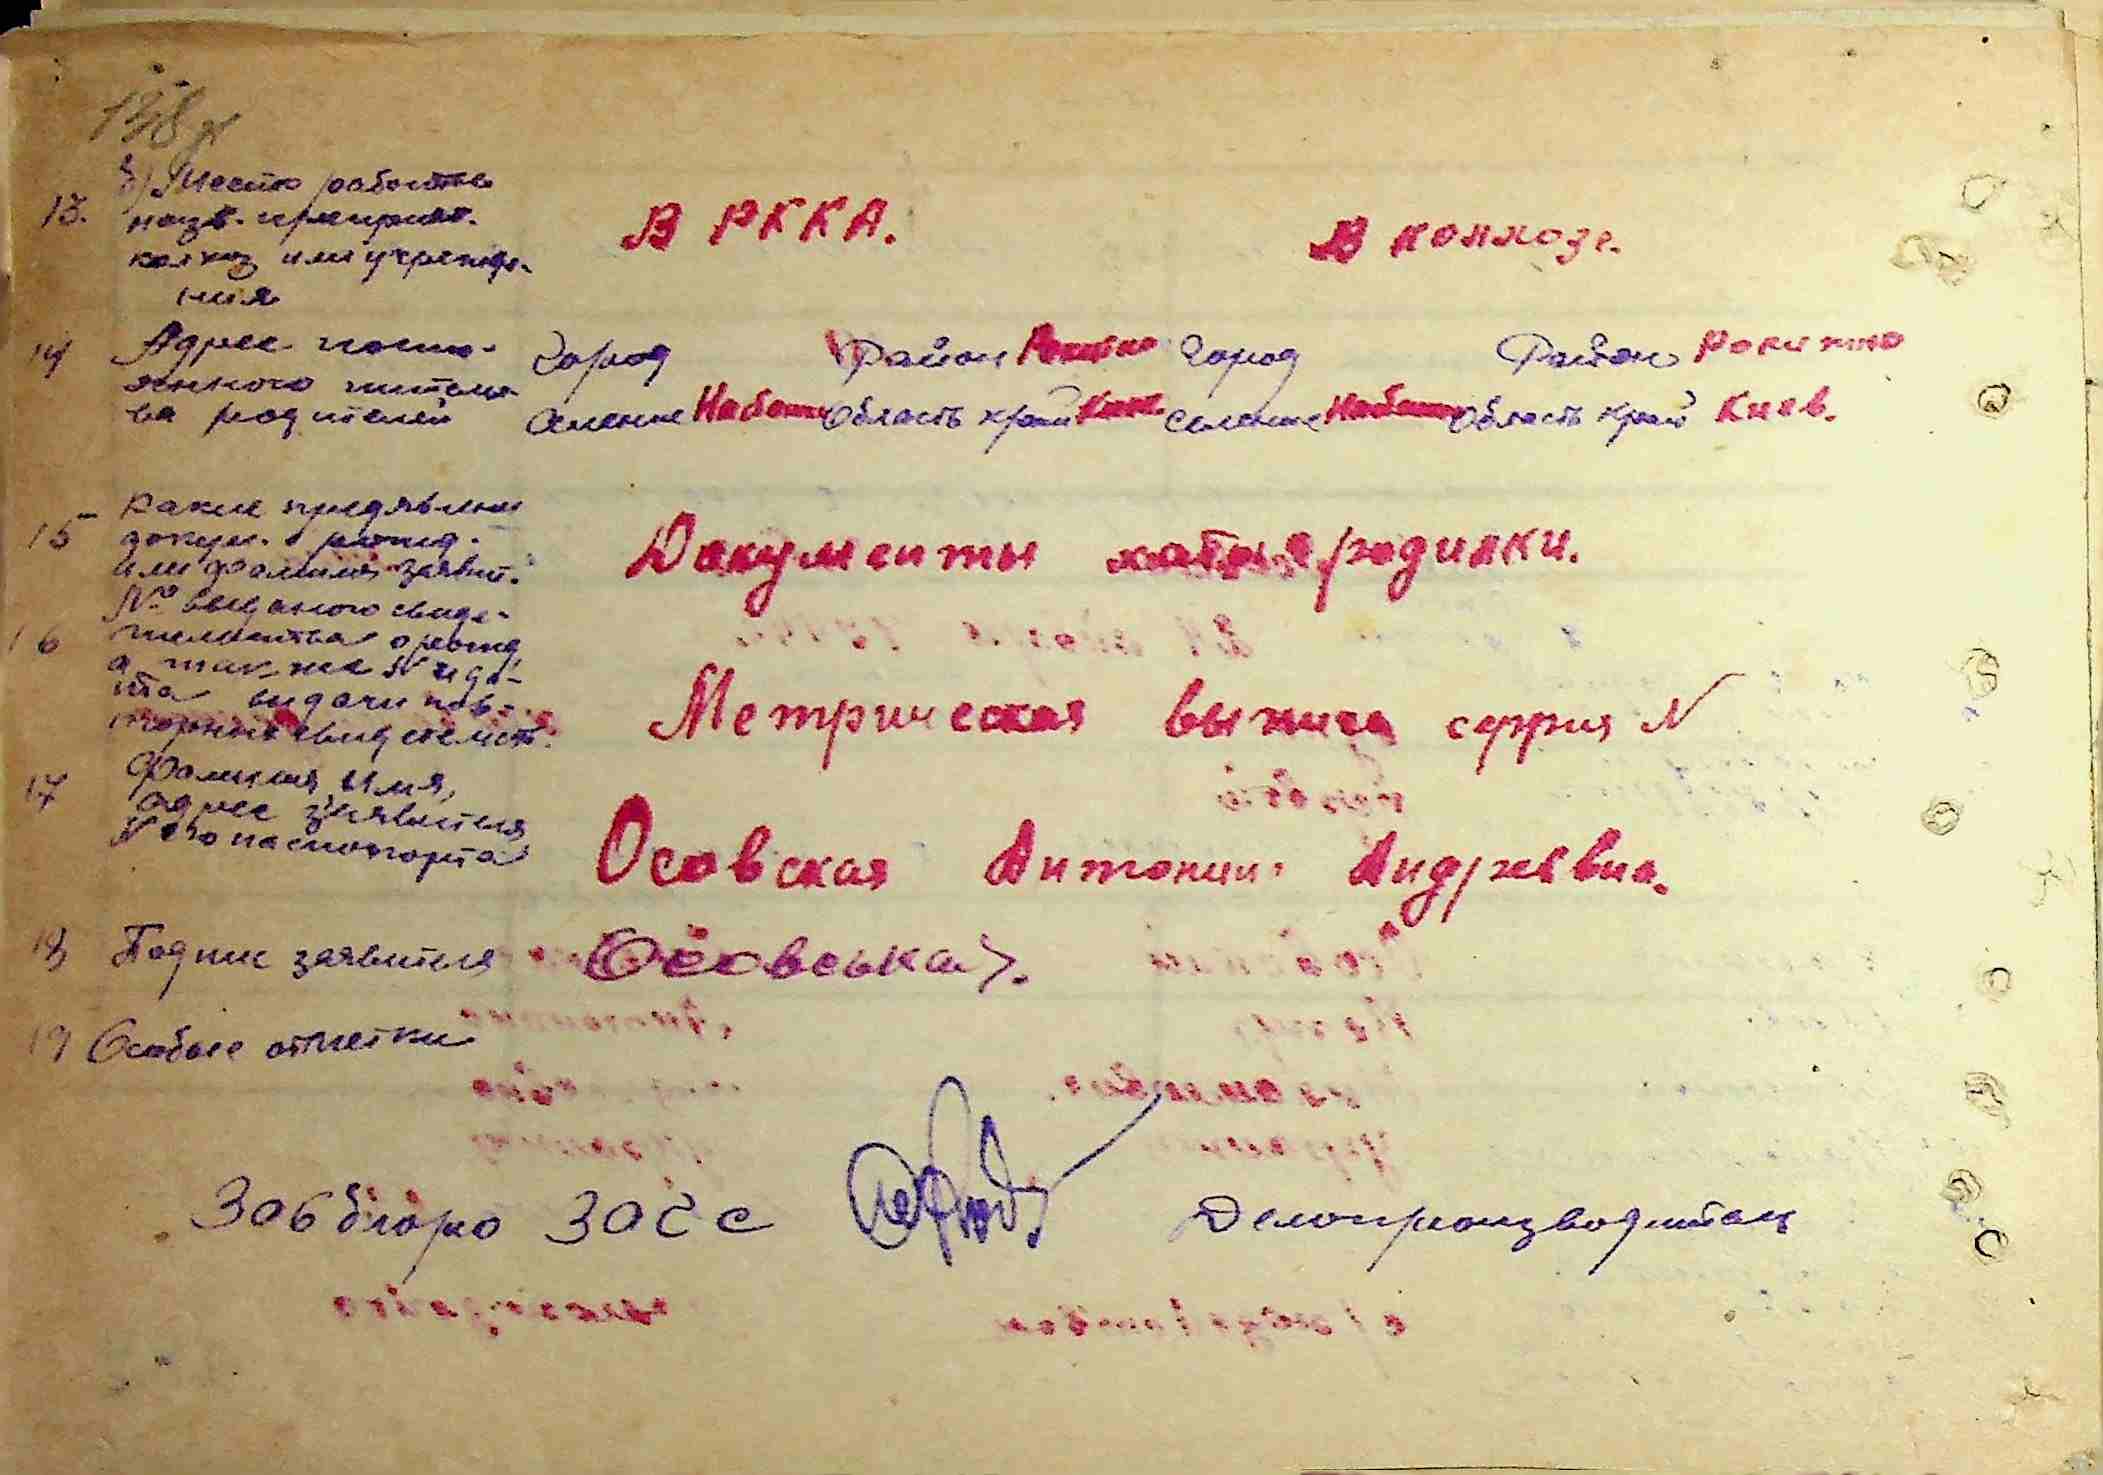 138
13.
б) Место работы
назв. предприят.
колхоз или учрежде-
ния
В РККА. В колхозе.
14 Адрес посто-
янного житель-
ва родителей
Город Район Рокитно Город Район Рокитно
Селение Область край Киев. Селение Область край Киев.
15 Какие предявлени
докум. о рожд.
или фамилия заявит.
Документы хаты родилки.
16 № выданого свиде-
тельства о рожд
а также № и да-
та выдачи пов-
торных свидетельст.
Метрическая выпись серрия №
17 Фамилия, Имя,
адрес заявителя
№ его паспопорта
Осовская Антонина Андреевна.
18 Подпис заявителя Осовська.
19 Особые отметки
Зав бюро ЗАГС Делопроизводитель